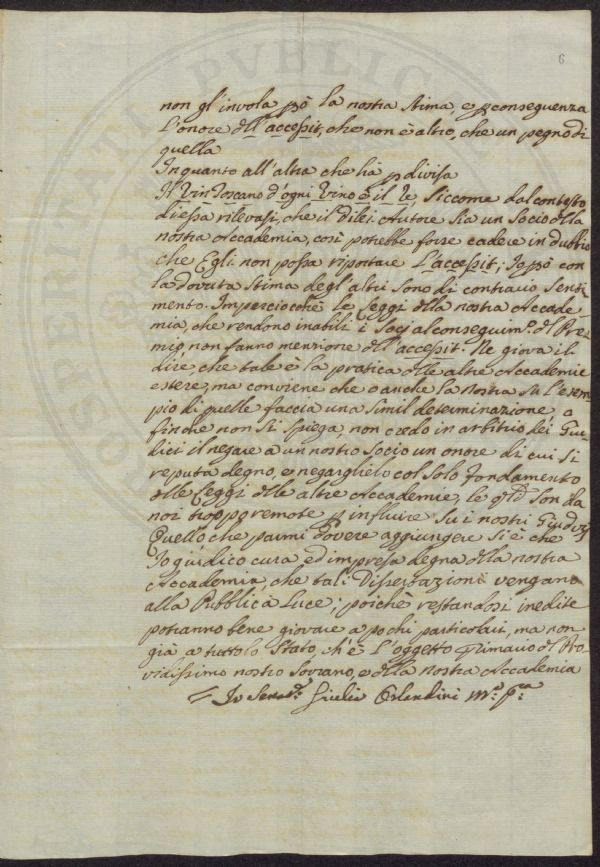 6
non gl'invola pò la nostra stima, e p conseguenza
l'onore dell'accessit, che non è altro, che un pegno di
quella
In quanto all'altra che hà p divisa
Il Vin Toscano d'ogni Vino è il Re, siccome dal contesto
di essa rilevasi, che il di lei Autore sia un Socio della
nostra Accademia, così potrebbe forse cadere in dubbio
che Egli non possa riportare l'accessit; Io pò con
la dovuta stima degl'altri sono di contrario senti
mento. Imperciocchè le Leggi della nostra Accade-
mia, che rendono inabili i Socj al conseguim.° del Pre-
mio, non fanno menzione dell'accessit. Ne giova il
dire, che tale è la pratica delle altre Accademie
estere, ma conviene che o anche la nostra su l'esem
pio di quelle faccia una simil determinazione, o
finche non si spiega, non credo in arbitrio dei Giu-
dici il negare a un nostro Socio un onore di cui si
reputa degno, e negarglielo col solo fondamento
delle Leggi delle altre Accademie, le qli son da
noi troppo remote p influire su i nostri Giudizj
Quello che parmi dovere aggiungere si è che
Io giudico cura ed impresa degna della nostra
Accademia, che tali Dissertazioni vengano
alla Pubblica Luce; poichè restandosi inedite
potranno bene giovare a pochi particolari, ma non
già a tutto lo Stato, ch'è l'oggetto primario del Pro-
vidissimo nostro Sovrano, e della nostra Accademia
Io Giulio Orlandini m.° p.a
PUBLICA